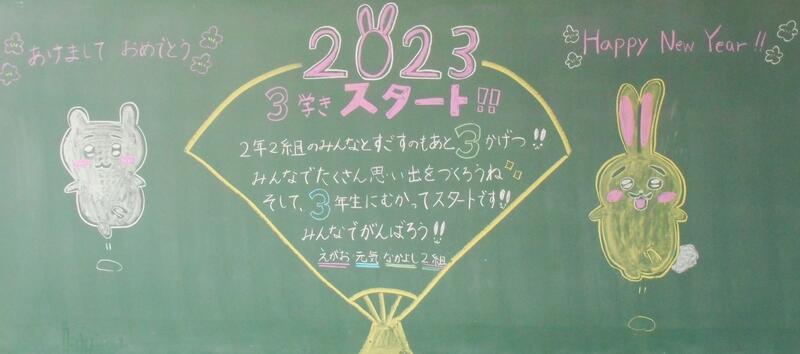 あけまして おめでとう
2023
Happy New Year!!
3学き スタート!!
2年2組のみんなとすごすのもあと3かげつ!!
みんなでたくさん思い出をつくろうね
そして、3年生にむかってスタートです!!
みんなでがんばろう!!
えがお 元気 なかよし 2組